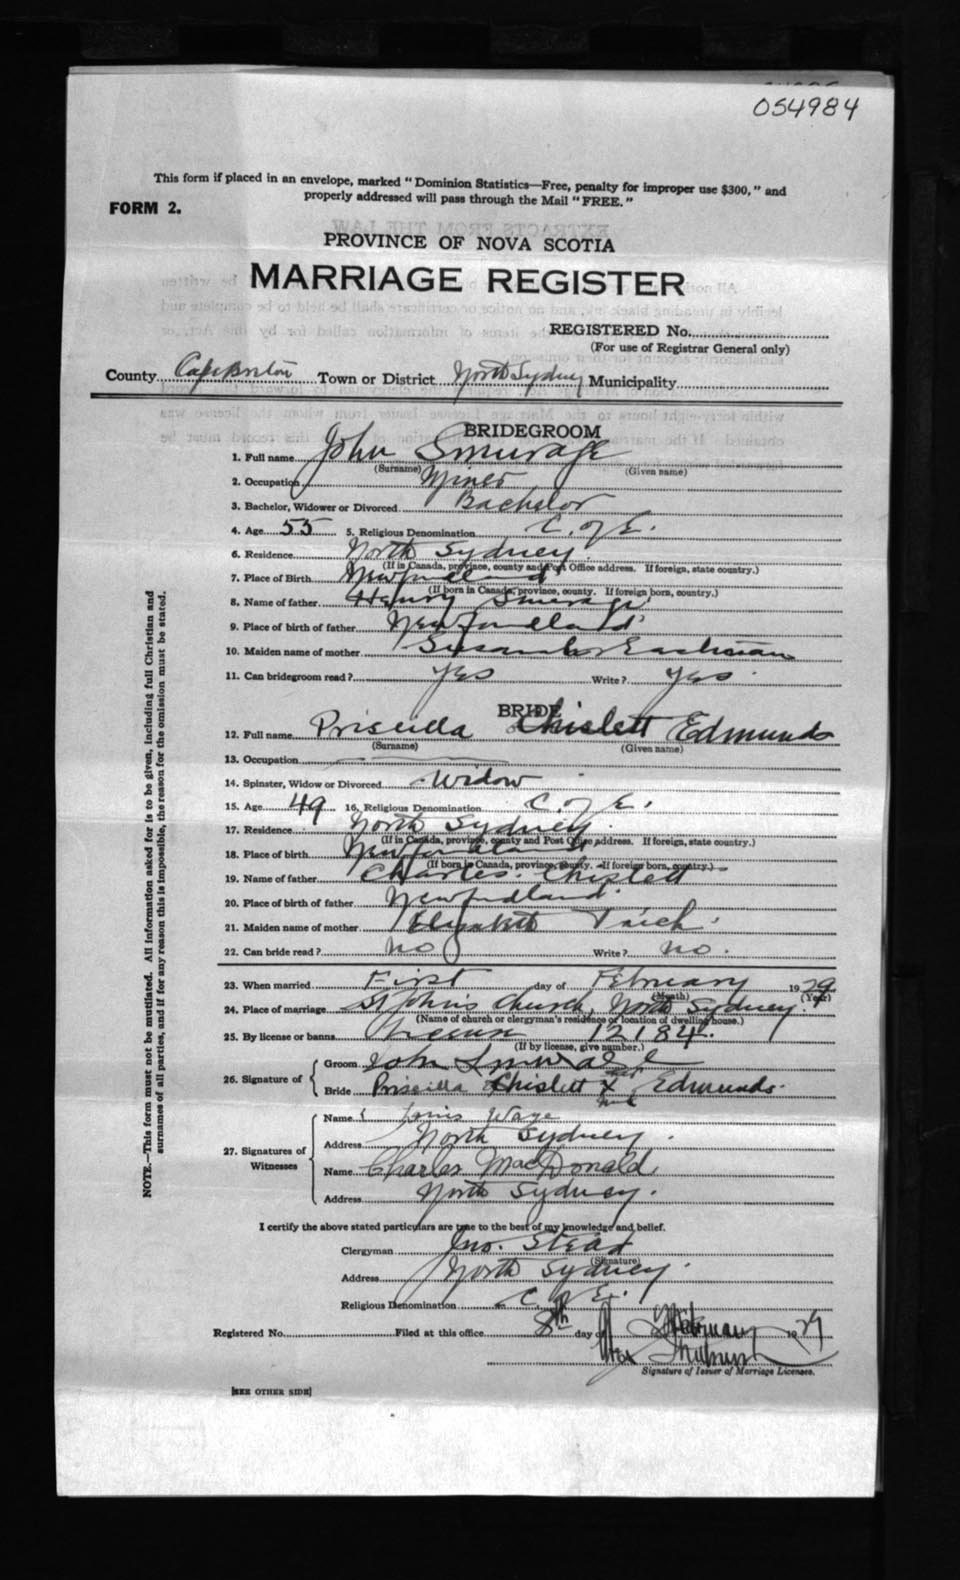 054984
This form if placed in an envelope, marked "Dominion Statistics—Free, penalty for improper use $300," and
properly addressed will pass through the Mail "FREE."
FORM 2.
PROVINCE OF NOVA SCOTIA
MARRIAGE REGISTER
REGISTERED No.
(For use of Registrar General only)
County Cape Breton Town or District North Sydney Municipality
BRIDEGROOM
1. Full name John Smurage
(Surname) (Given name)
2. Occupation Miner
3. Bachelor, Widower or Divorced Bachelor
4. Age 55 5. Religious Denomination C. of E.
6. Residence North Sydney
(If in Canada, province, county and Post Office address. If foreign, state country.)
7. Place of Birth Newfoundland
(If born in Canada, province, county. If foreign born, country.)
8. Name of father Henry Smurage
9. Place of birth of father Newfoundland
10. Maiden name of mother Susannah Eastman
11. Can bridegroom read? Yes Write? Yes
BRIDE
12. Full name Priscilla Chislett Edmunds
(Surname) (Given name)
13. Occupation
14. Spinster, Widow or Divorced Widow
15. Age 49 16. Religious Denomination C. of E.
17. Residence North Sydney
(If in Canada, province, county and Post Office address. If foreign, state country.)
18. Place of birth Newfoundland
(If born in Canada, province, county. If foreign born, country.)
19. Name of father Charles Chislett
20. Place of birth of father Newfoundland
21. Maiden name of mother Elizabeth
22. Can bride read? no Write? no.
23. When married First day of February 1929
(Month) (Year)
24. Place of marriage St John's Church, North Sydney.
(Name of church or clergyman's residence or location of dwelling house.)
25. By license or banns License 12184.
(If by license, give number.)
26. Signature of
Groom John Smurage
Bride Priscilla Chislett X Edmunds
her
mark
27. Signatures of Witnesses
Name Wage
Address North Sydney.
Name Charles MacDonald
Address North Sydney.
I certify the above stated particulars are true to the best of my knowledge and belief.
Clergyman Jno. Stead
(Signature)
Address North Sydney.
Religious Denomination C. of E.
Registered No. Filed at this office 8th day of February 1929
Signature of Issuer of Marriage Licenses.
[SEE OTHER SIDE]
NOTE.—This form must not be mutilated. All information asked for is to be given, including full Christian and
surnames of all parties, and if for any reason this is impossible, the reason for the omission must be stated.